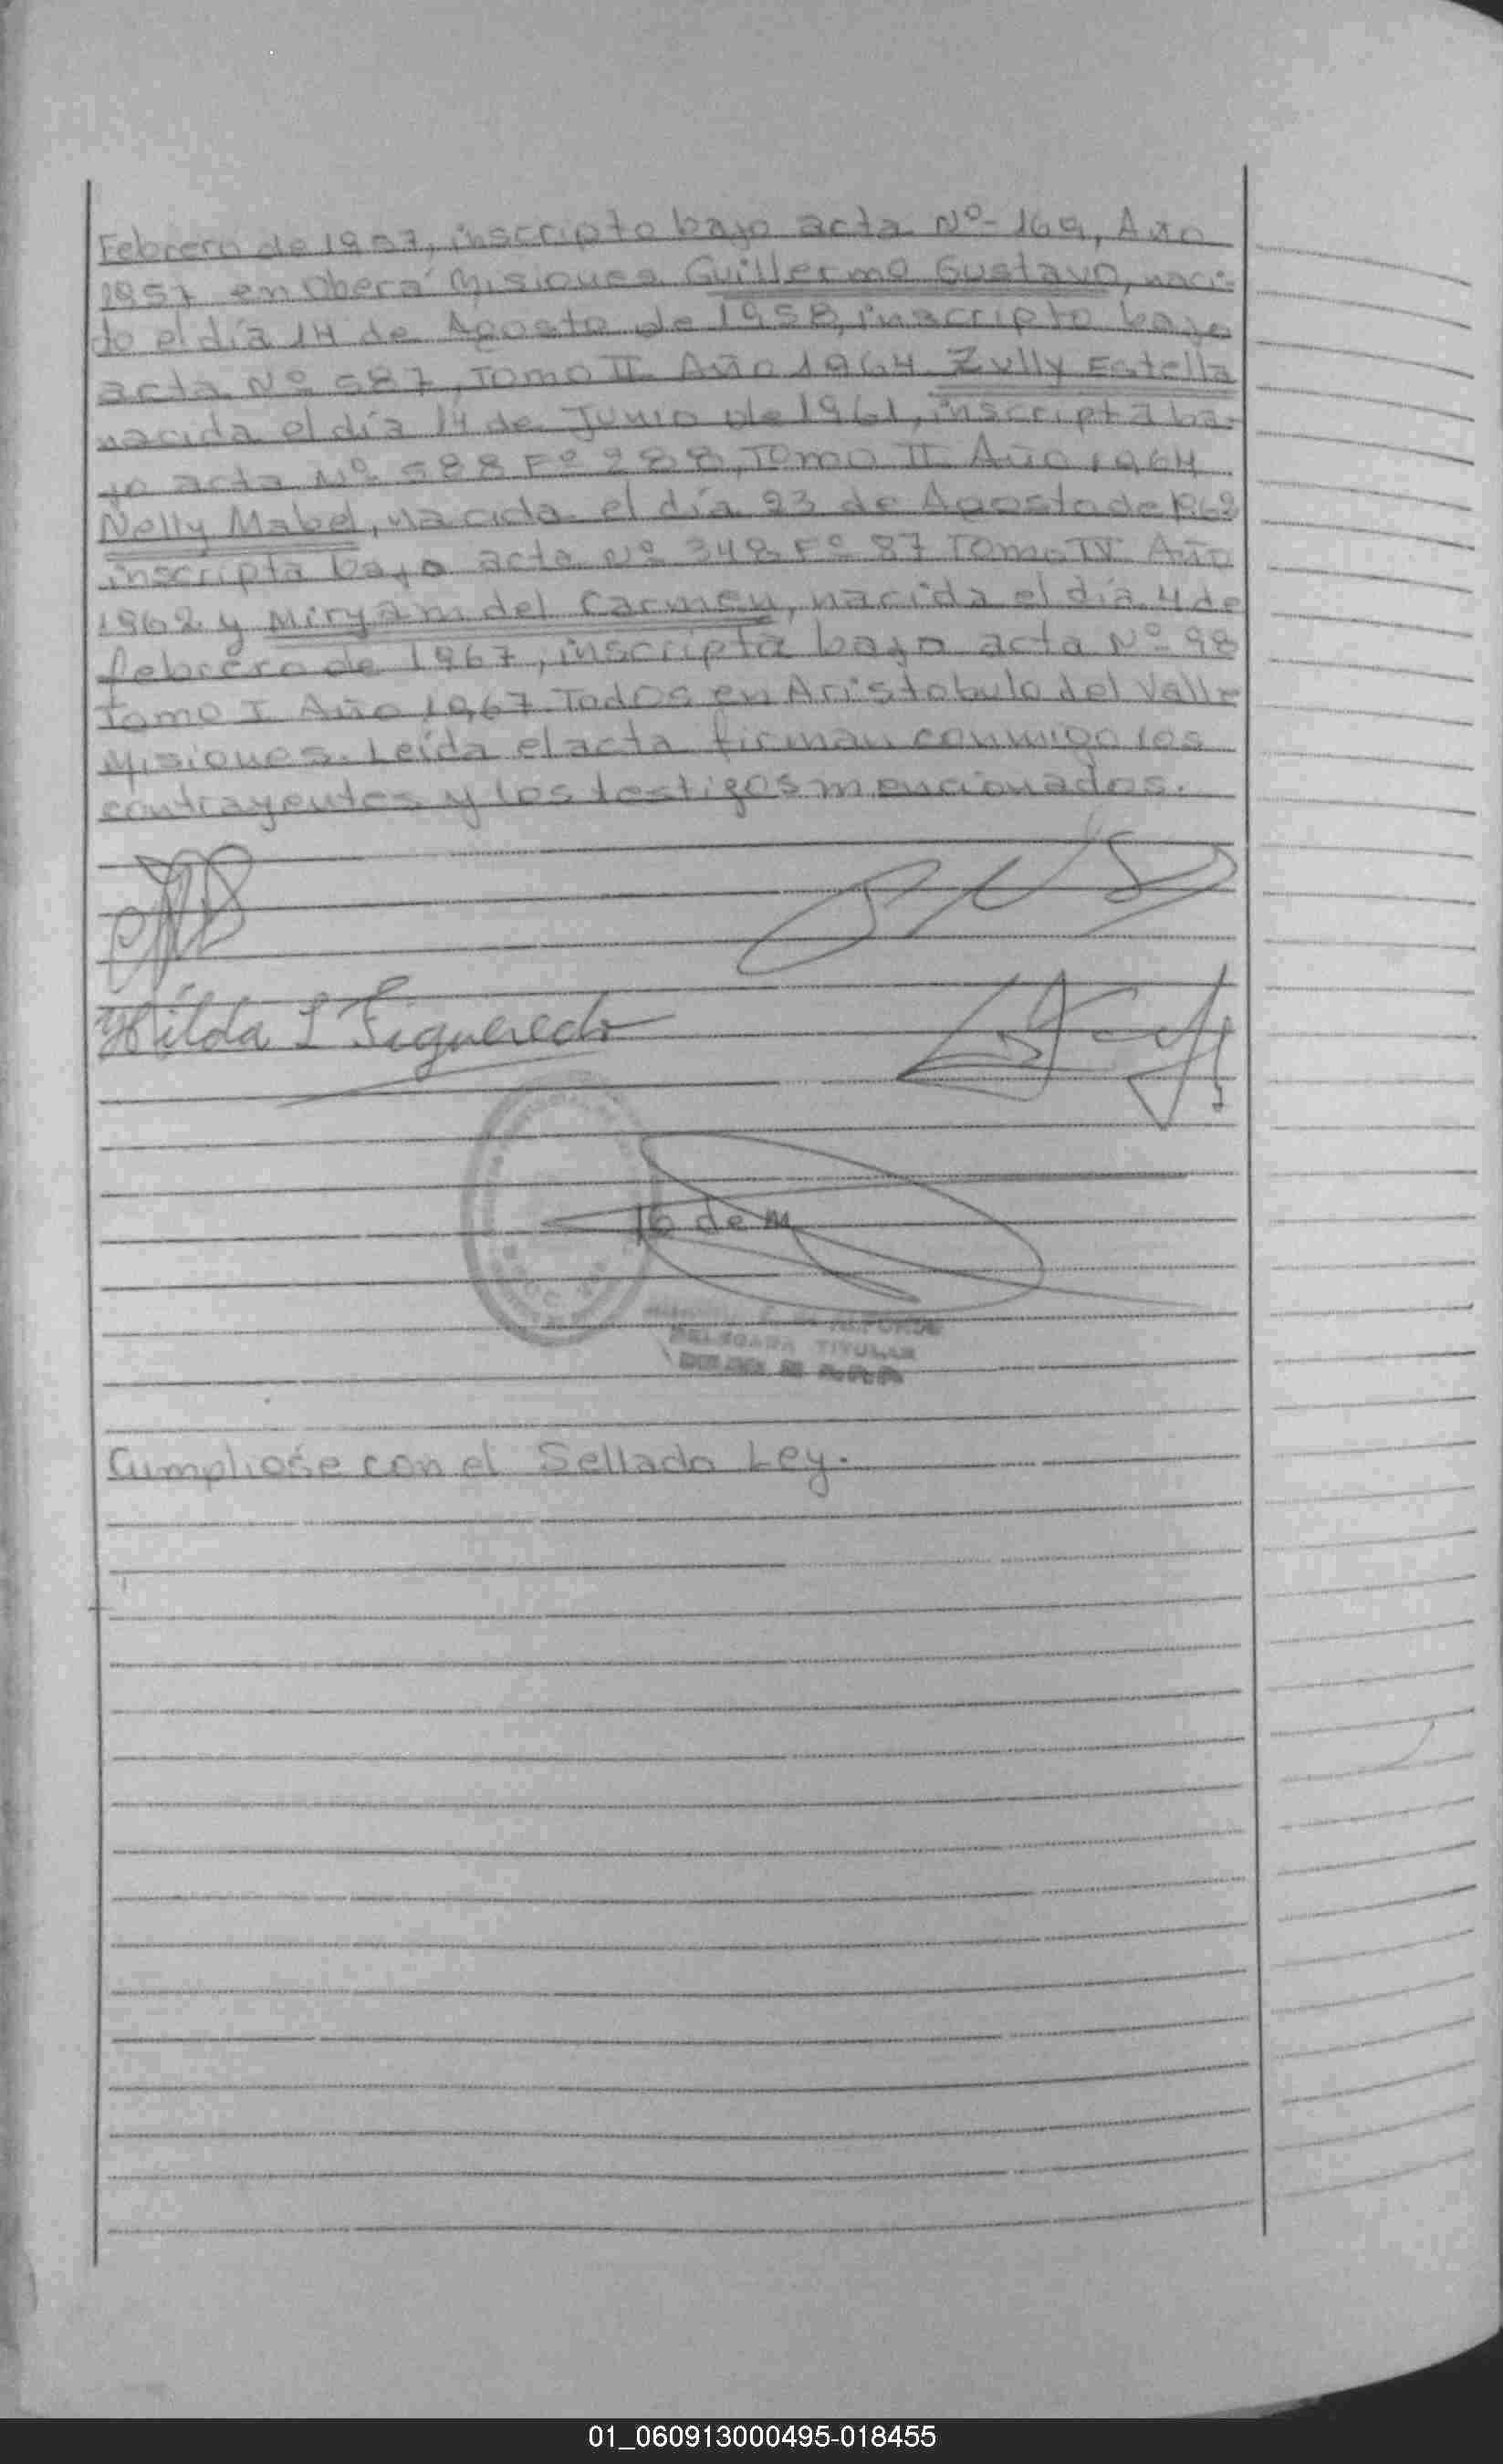 Febrero de 1957, inscripto bajo acta Nº- 169, Año
1957 en Oberá Misiones. Guillermo Gustavo, naci-
do el día 14 de Agosto de 1958, inscripto bajo
acta Nº 587, Tomo II Año 1964. Zully Estella
nacida el día 14 de Junio de 1961, inscripta ba-
jo acta Nº 588 Fº 288, Tomo II Año 1964.
Nelly Mabel, nacida el día 23 de Agosto de 1962
inscripta bajo acta Nº 348 Fº 87 Tomo IV Año
1962 y Miryam del Carmen, nacida el día 4 de
febrero de 1967, inscripta bajo acta Nº 98
Tomo I Año 1967. Todos en Aristobulo del Valle
Misiones. Leída el acta firman conmigo los
contrayentes y los testigos mencionados.
Hilda L Figueredo
16 de m
DELEGADA TITULAR
Cumpliose con el Sellado Ley.
01_060913000495-018455